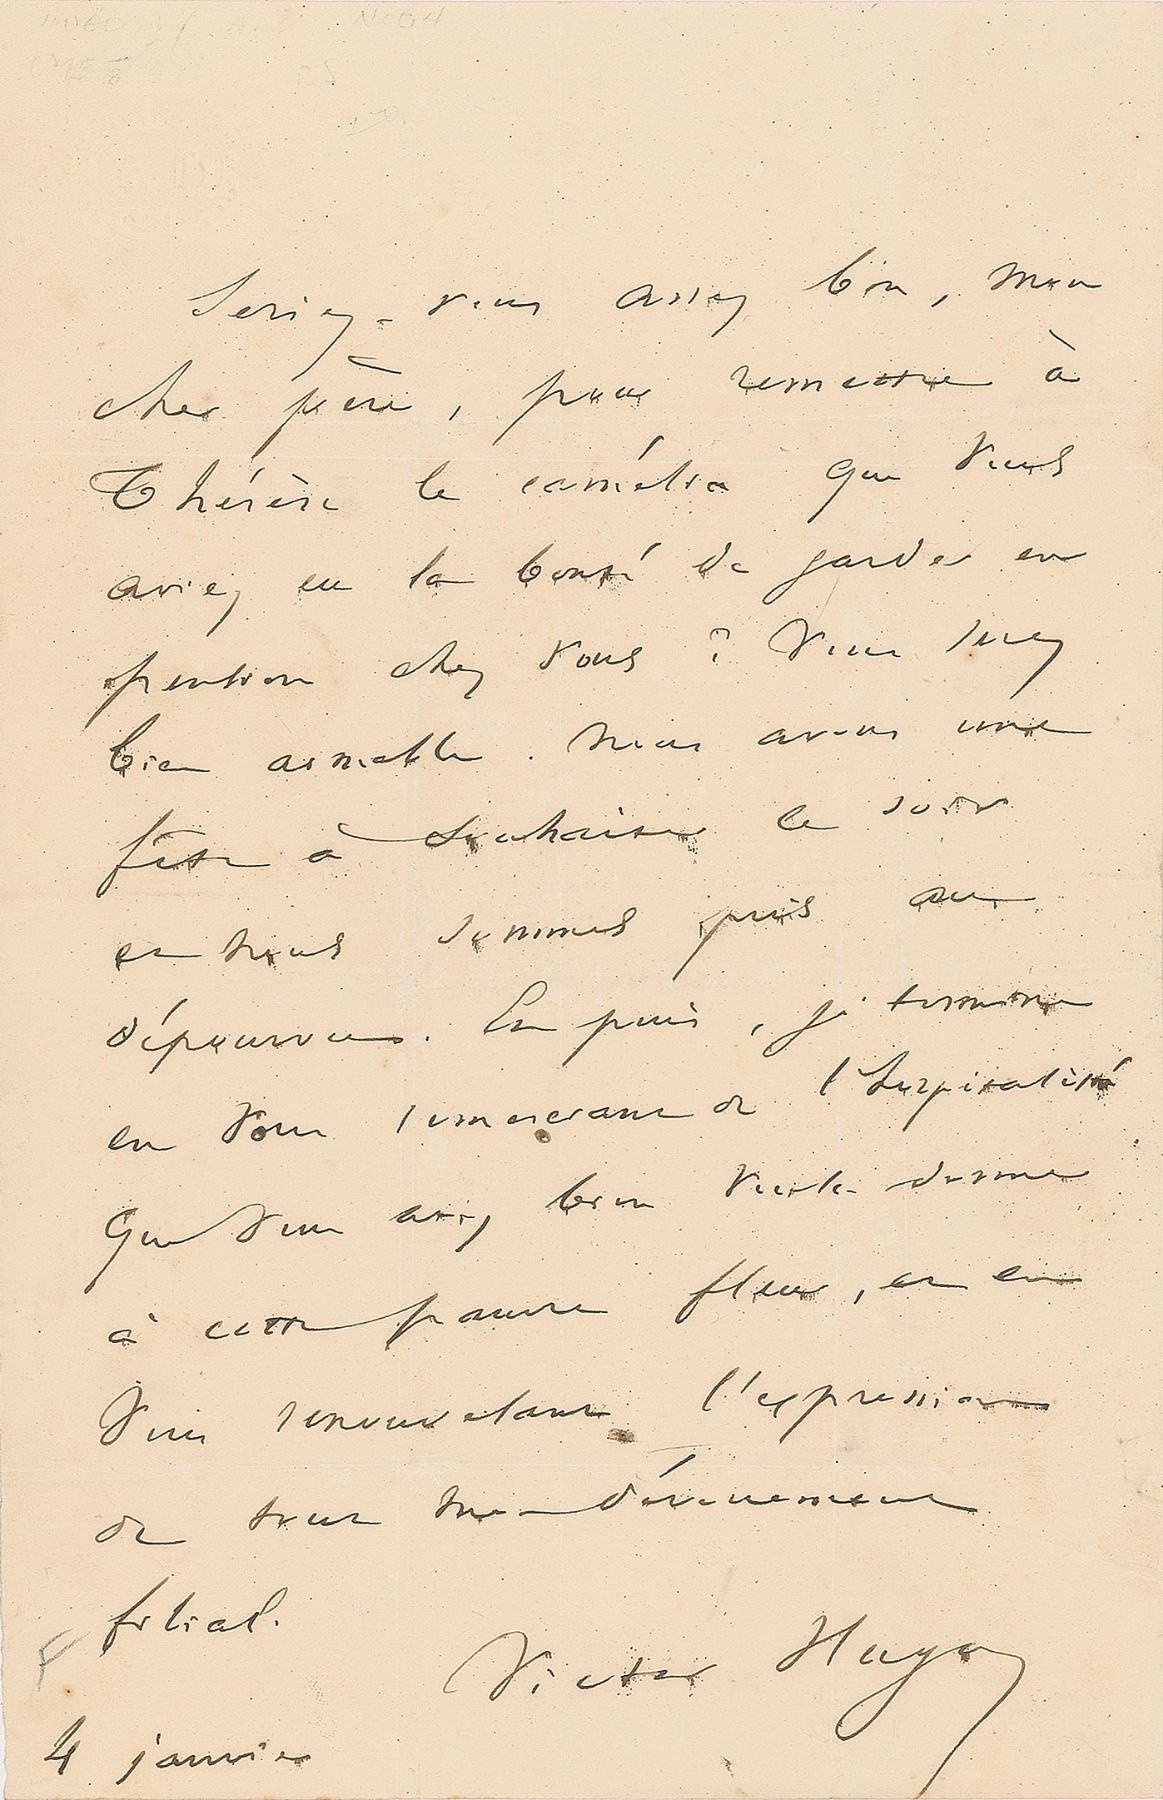 Seriez-vous assez bon, mon
cher père, pour remettre à
Thérèse le camélia que vous
aviez eu la bonté de garder en
pension chez vous ? Vous serez
bien aimable. Nous avons une
fête à souhaiter ce soir
et nous sommes pris au
dépourvu. En pris, je termine
en vous remerciant de l'hospitalité
que vous avez bien voulu donner
à cette pauvre fleur, et en
vous renouvelant l'expression
de tout mon dévouement
filial.
Victor Hugo
4 janvier